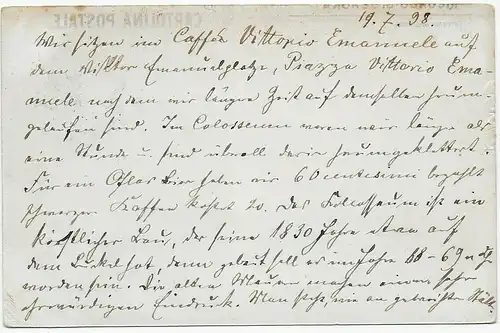 CARTOLINA POSTALE
19.7.98.
Wir sitzen im Caffee Vittorio Emanuele auf
dem Viktor Emanuelplatze, Piazza Vittorio Ema-
nuele nach dem wir längere Zeit auf demselben herum-
gelaufen sind. Im Colosseum waren wir länger als
eine Stunde u. sind überall darin herumgeklettert.
Für ein Glas Bier haben wir 60 centesimi bezahlt
schwarzer Kaffee kostet 20. Das Kolosseum ist ein
köstlicher Bau, der seine 1830 Jahre etwa auf
dem Buckel hat, denn gebaut soll er im Jahre 68-69 n.
worden sein. Die alten Mauern machen einen sehr
ehrwürdigen Eindruck. Man sieht, wie an